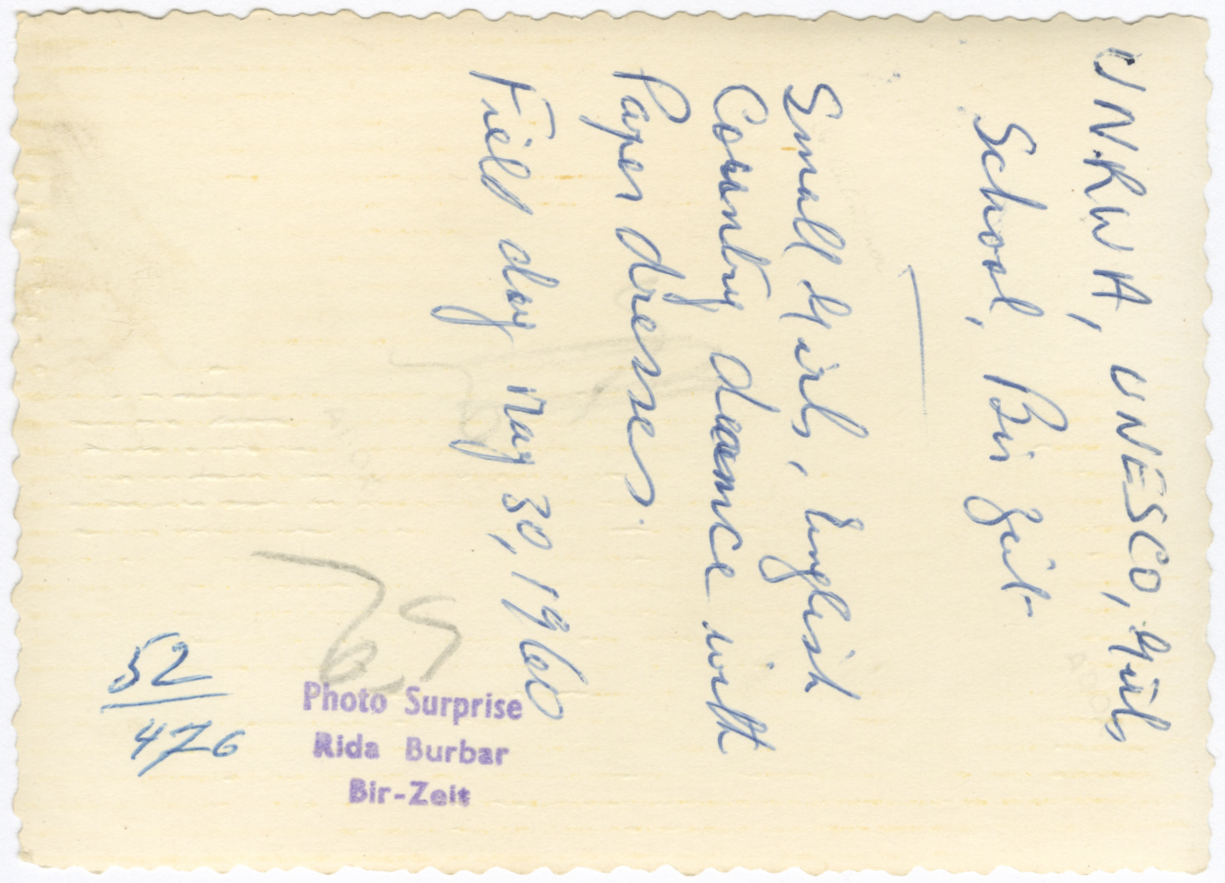 UNRWA, UNESCO, Girls
School, Bir Zeit
Small Girls, English
Country daance with
Paper dresses.
Field day May 30, 1960
52/476
Photo Surprise
Rida Burbar
Bir-Zeit